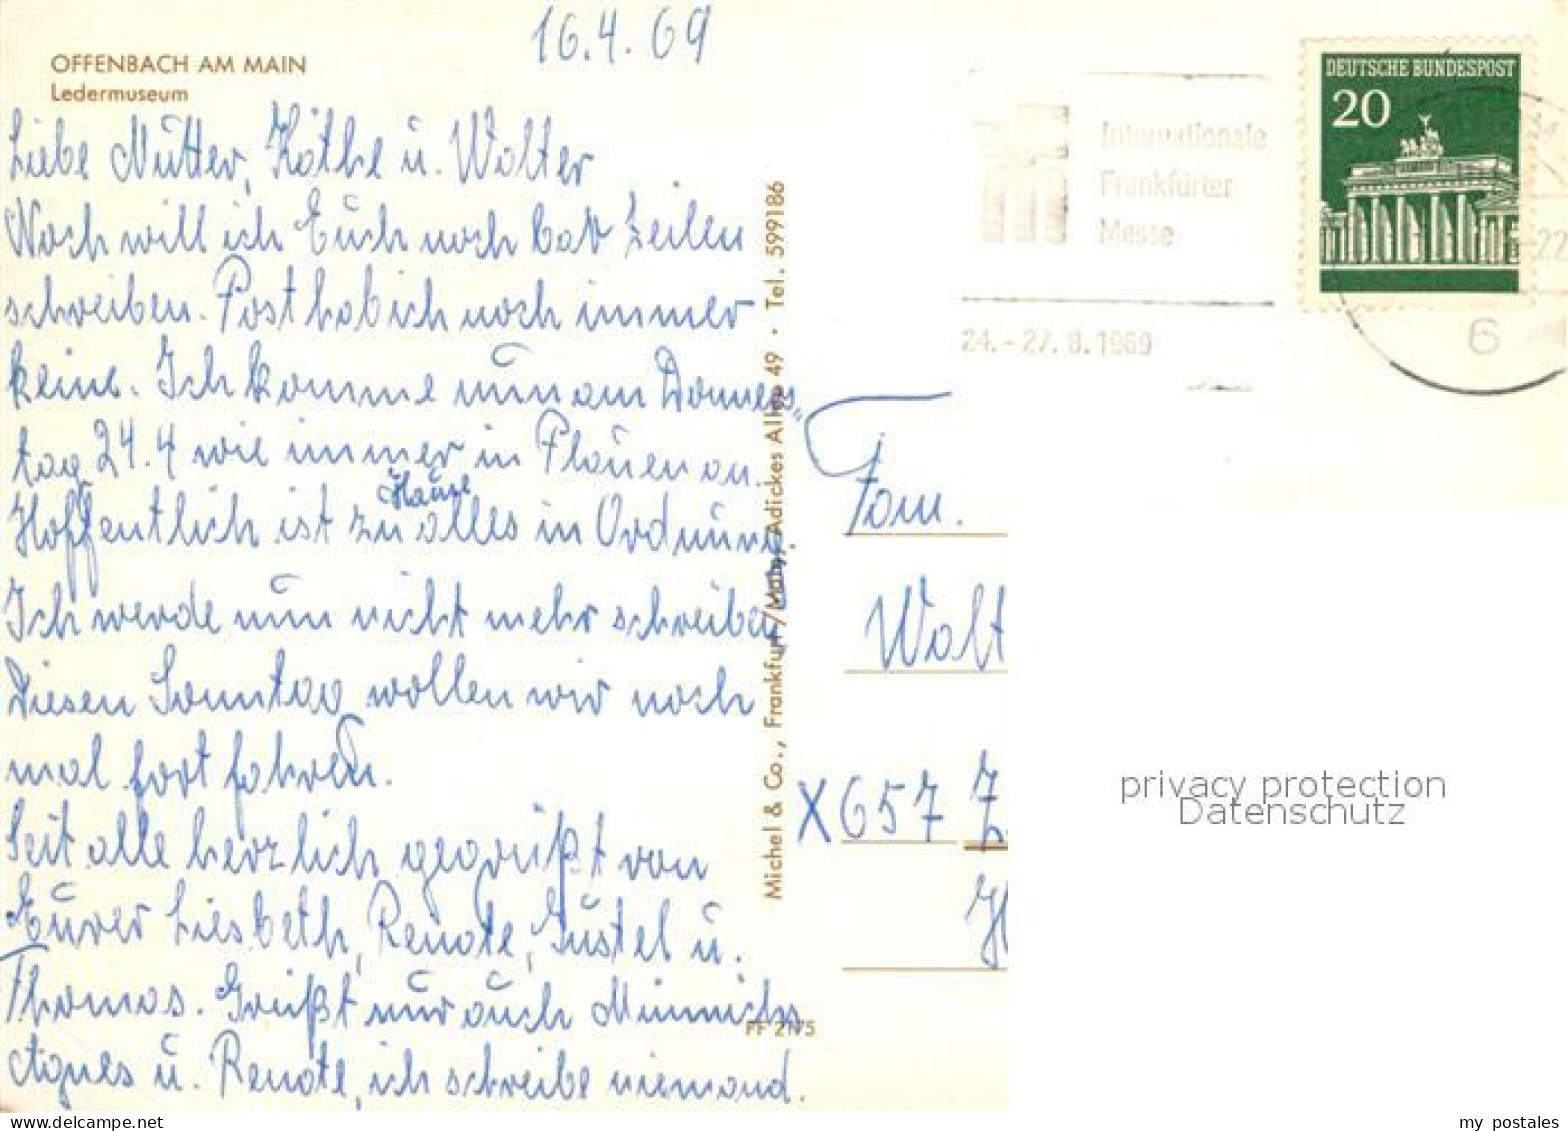 16.4.69
OFFENBACH AM MAIN
Ledermuseum
Liebe Mutter, Käthe u. Walter
Noch will ich Euch noch par Zeilen
schreiben. Post hab ich noch immer
keine. Ich komme nun am Donners
tag 24.4 wie immer in Plauen an.
Hoffentlich ist zu Hause alles in Ordnung.
Ich werde nun nicht mehr schreiben
Diesen Sonntag wollen wir noch
mal fort fahren.
Seit alle herzlich gegrüßt von
Eurer Liesbeth, Renate, Gustel u.
Thomas. Grüßt nur auch Münnichs
Agnes u. Renate, ich schreibe niemand.
Michel & Co., Frankfurt/Main, Adickes Allee 49 · Tel. 599186
FF 2175
Internationale
Frankfurter
Messe
24.-27.8.1969
DEUTSCHE BUNDESPOST
20
22
6
Fam.
Walt
X657 Z
privacy protection
Datenschutz
my postales